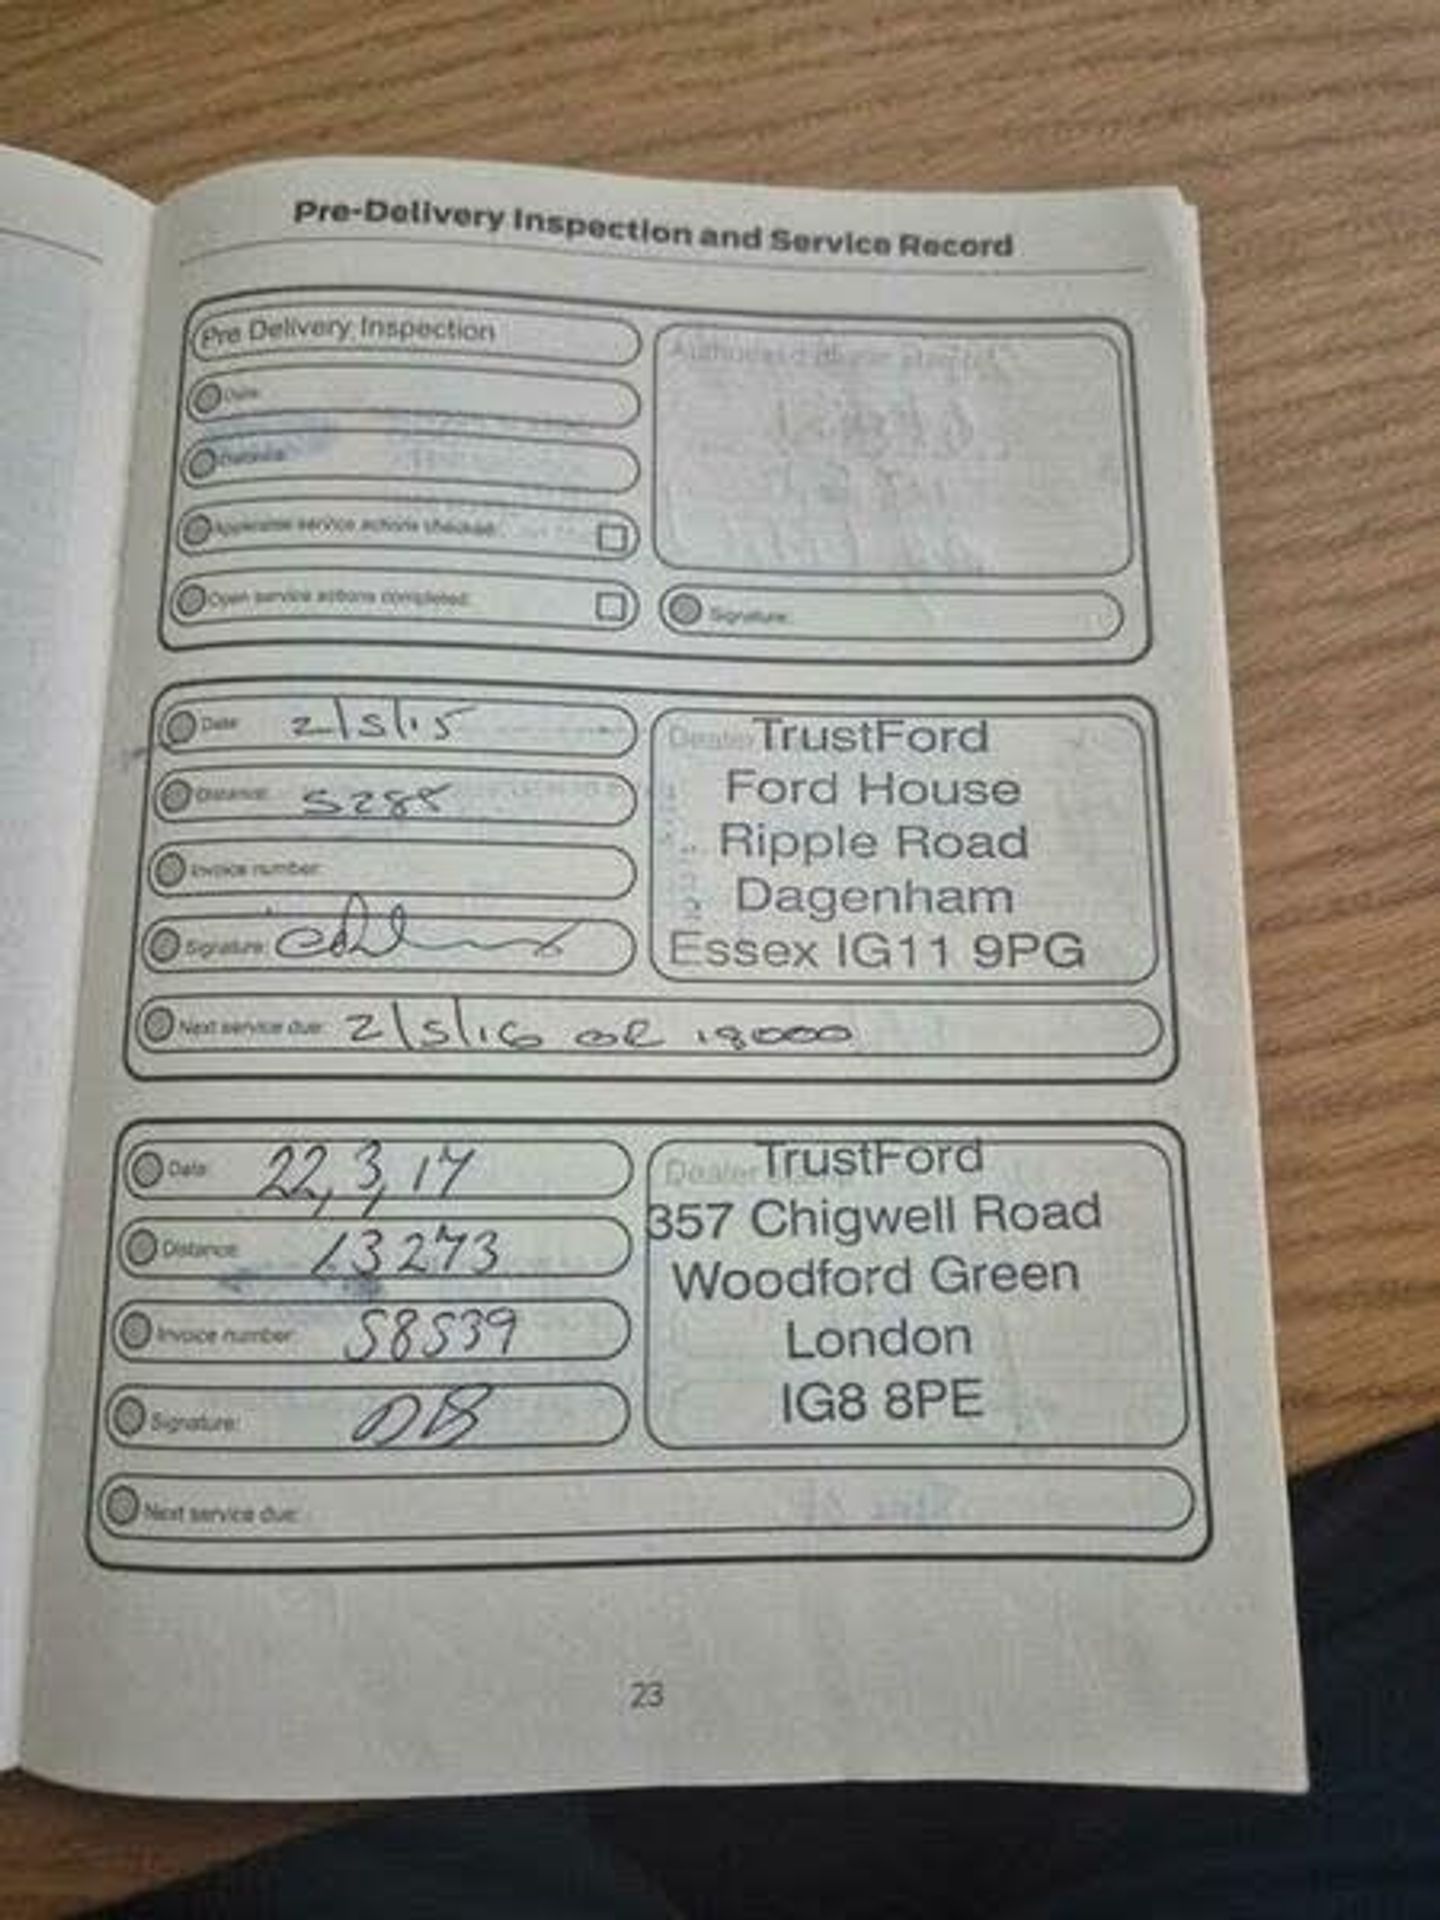 Pre-Delivery Inspection and Service Record
Pre Delivery Inspection
Date:
Distance:
service actions checked:
Open service actions completed:
Authorised dealer stamp
Signature:
Date: 2/5/15
Distance: 5288
Invoice number:
Signature:
Next service due: 2/5/16 OR 18000
Dealer
TrustFord
Ford House
Ripple Road
Dagenham
Essex IG11 9PG
Date: 22,3,17
Distance: 13273
Invoice number: 58539
Signature: DB
Next service due:
Dealer
TrustFord
357 Chigwell Road
Woodford Green
London
IG8 8PE
23